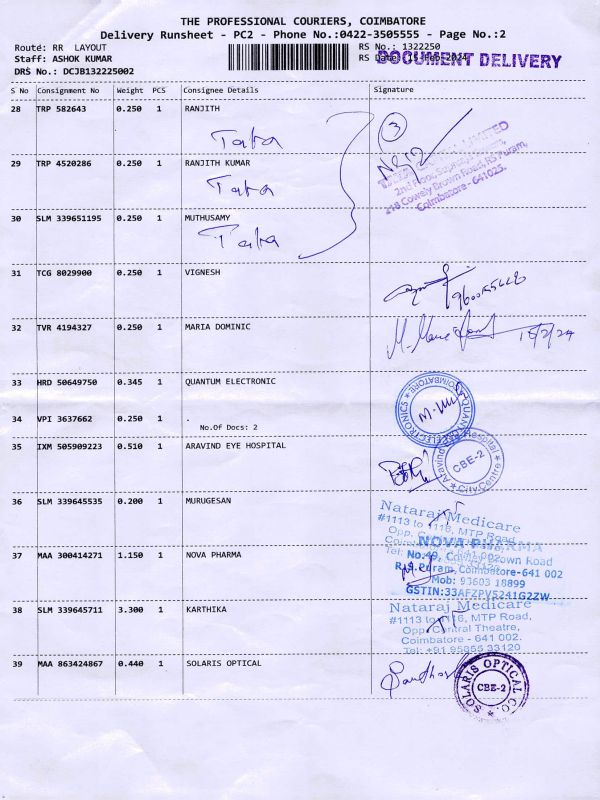 THE PROFESSIONAL COURIERS, COIMBATORE
Delivery Runsheet - PC2 - Phone No.:0422-3505555 - Page No.:2
Route: RR LAYOUT
RS No.: 1322250
Staff: ASHOK KUMAR
RS Date: 15-Feb-2024
DOCUMENT DELIVERY
DRS No.: DCJB132225002
S No Consignment No Weight PCS Consignee Details Signature
28 TRP 582643 0.250 1 RANJITH
Tata
3
29 TRP 4520286 0.250 1 RANJITH KUMAR
Tata
LIMITED
2nd Floor,
218 Cowely Brown Road, RS Puram,
Coimbatore - 641025.
30 SLM 339651195 0.250 1 MUTHUSAMY
Tata
31 TCG 8029900 0.250 1 VIGNESH
32 TVR 4194327 0.250 1 MARIA DOMINIC
15/2/24
33 HRD 50649750 0.345 1 QUANTUM ELECTRONIC
QUANTUM ELECTRONICS
COIMBATORE
34 VPI 3637662 0.250 1 .
No.Of Docs: 2
35 IXM 505909223 0.510 1 ARAVIND EYE HOSPITAL
Aravind Eye Hospital
CBE-2
City Centre
36 SLM 339645535 0.200 1 MURUGESAN
Nataraj Medicare
#1113 to 1116, MTP Road,
37 MAA 300414271 1.150 1 NOVA PHARMA
NOVA PHARMA
No:49, Cowley Brown Road
R.S.Puram, Coimbatore-641 002
Mob: 93603 18899
GSTIN:33AFZPV5241G2ZW
38 SLM 339645711 3.300 1 KARTHIKA
Nataraj Medicare
#1113 to 1116, MTP Road,
Opp. Central Theatre,
Coimbatore - 641 002.
Tel: +91 95855 33120
39 MAA 863424867 0.440 1 SOLARIS OPTICAL
SOLARIS OPTICAL CO.
CBE-2